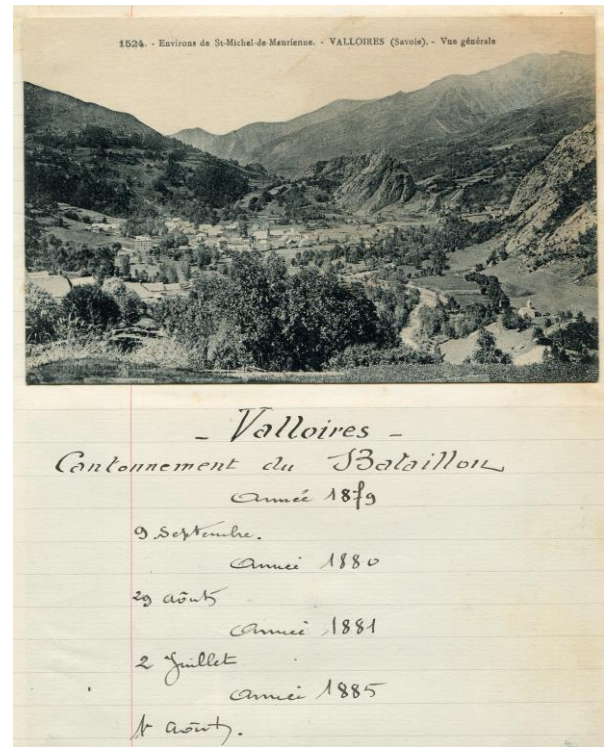 1524. - Environs de St-Michel-de-Maurienne. - VALLOIRES (Savoie). - Vue générale
- Valloires -
Cantonnement du Bataillon
Année 1879
9 Septembre.
Année 1880
29 Août
Année 1881
2 Juillet
Année 1885
Août.